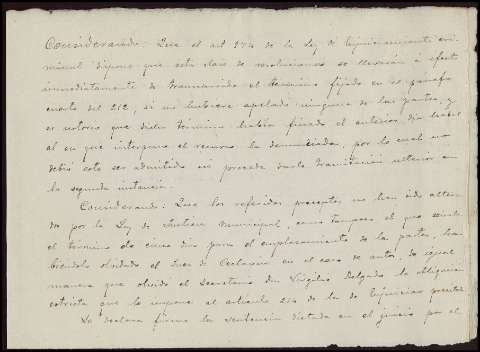 Considerando: Que el art 974 de la Ley de Enjuiciamiento cri-
minal dispone que esta clase de resoluciones se llevarán á efecto
inmediatamente de transcurrido el término fijado en el párrafo
cuarto del 212, si no hubiere apelado ninguna de las partes, y
es notorio que dicho término había finado el anterior día habil
al en que interpuso el recurso la denunciada, por lo cual no
debió este ser admitido ni procede darle tramitación ulterior en
la segunda instancia.
Considerando: Que los referidos preceptos no han sido altera-
dos por la Ley de Justicia Municipal, como tampoco el que señala
el término de cinco días para el emplazamiento de las partes, ha-
biéndolo olvidado el Juez de en el caso de autos, de igual
manera que olvidó el Secretario Don Virgilio Delgado la obligación
estricta que le impone el artículo 204 de la de Enjuiciar
Se declara firme la sentencia dictada en el juicio por el